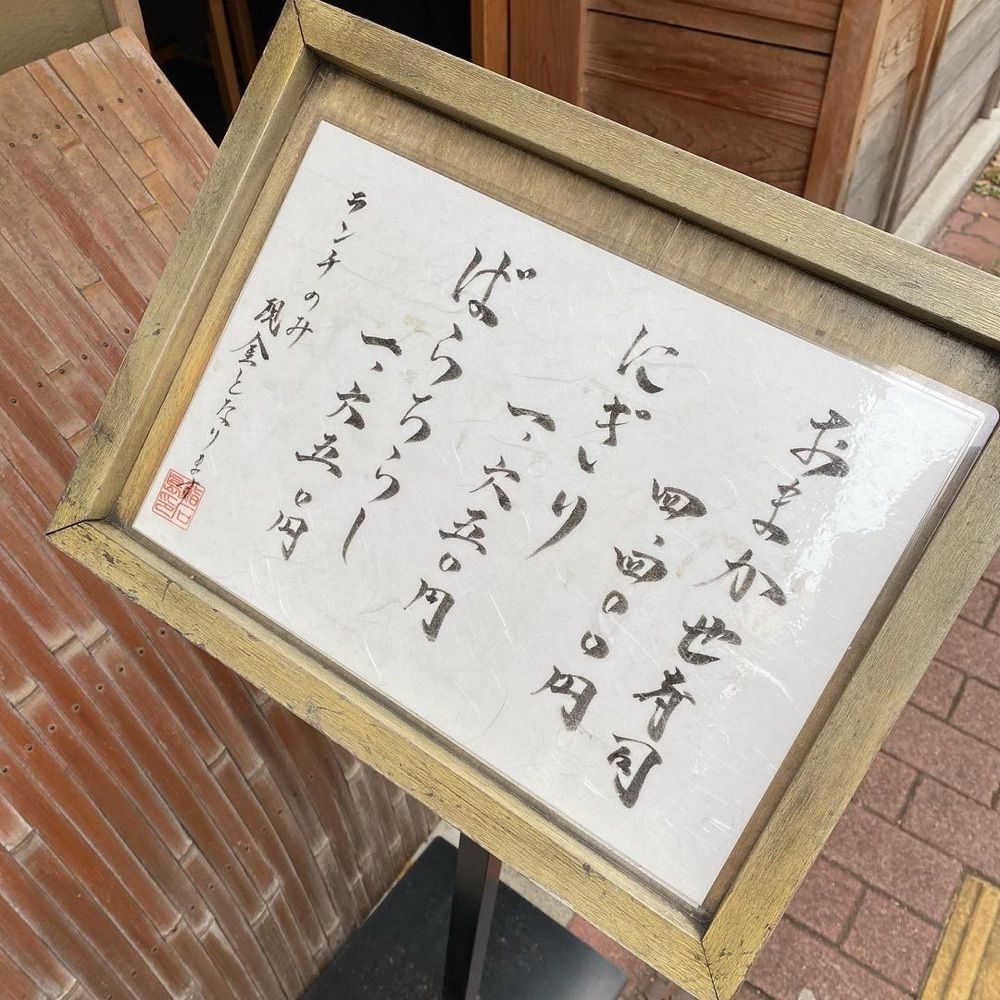 おまかせ寿司
四、四〇〇円
にぎり
一、六五〇円
ばらちらし
一、六五〇円
ランチのみ
現金となります